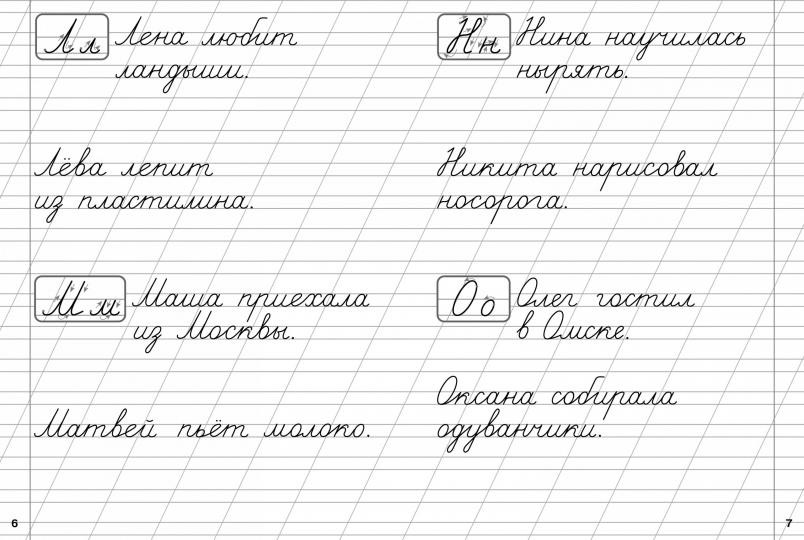 Л л Лена любит
ландыши.
Лёва лепит
из пластилина.
М м Маша приехала
из Москвы.
Матвей пьёт молоко.
6
Н н Нина научилась
нырять.
Никита нарисовал
носорога.
О о Олег гостил
в Омске.
Оксана собирала
одуванчики.
7